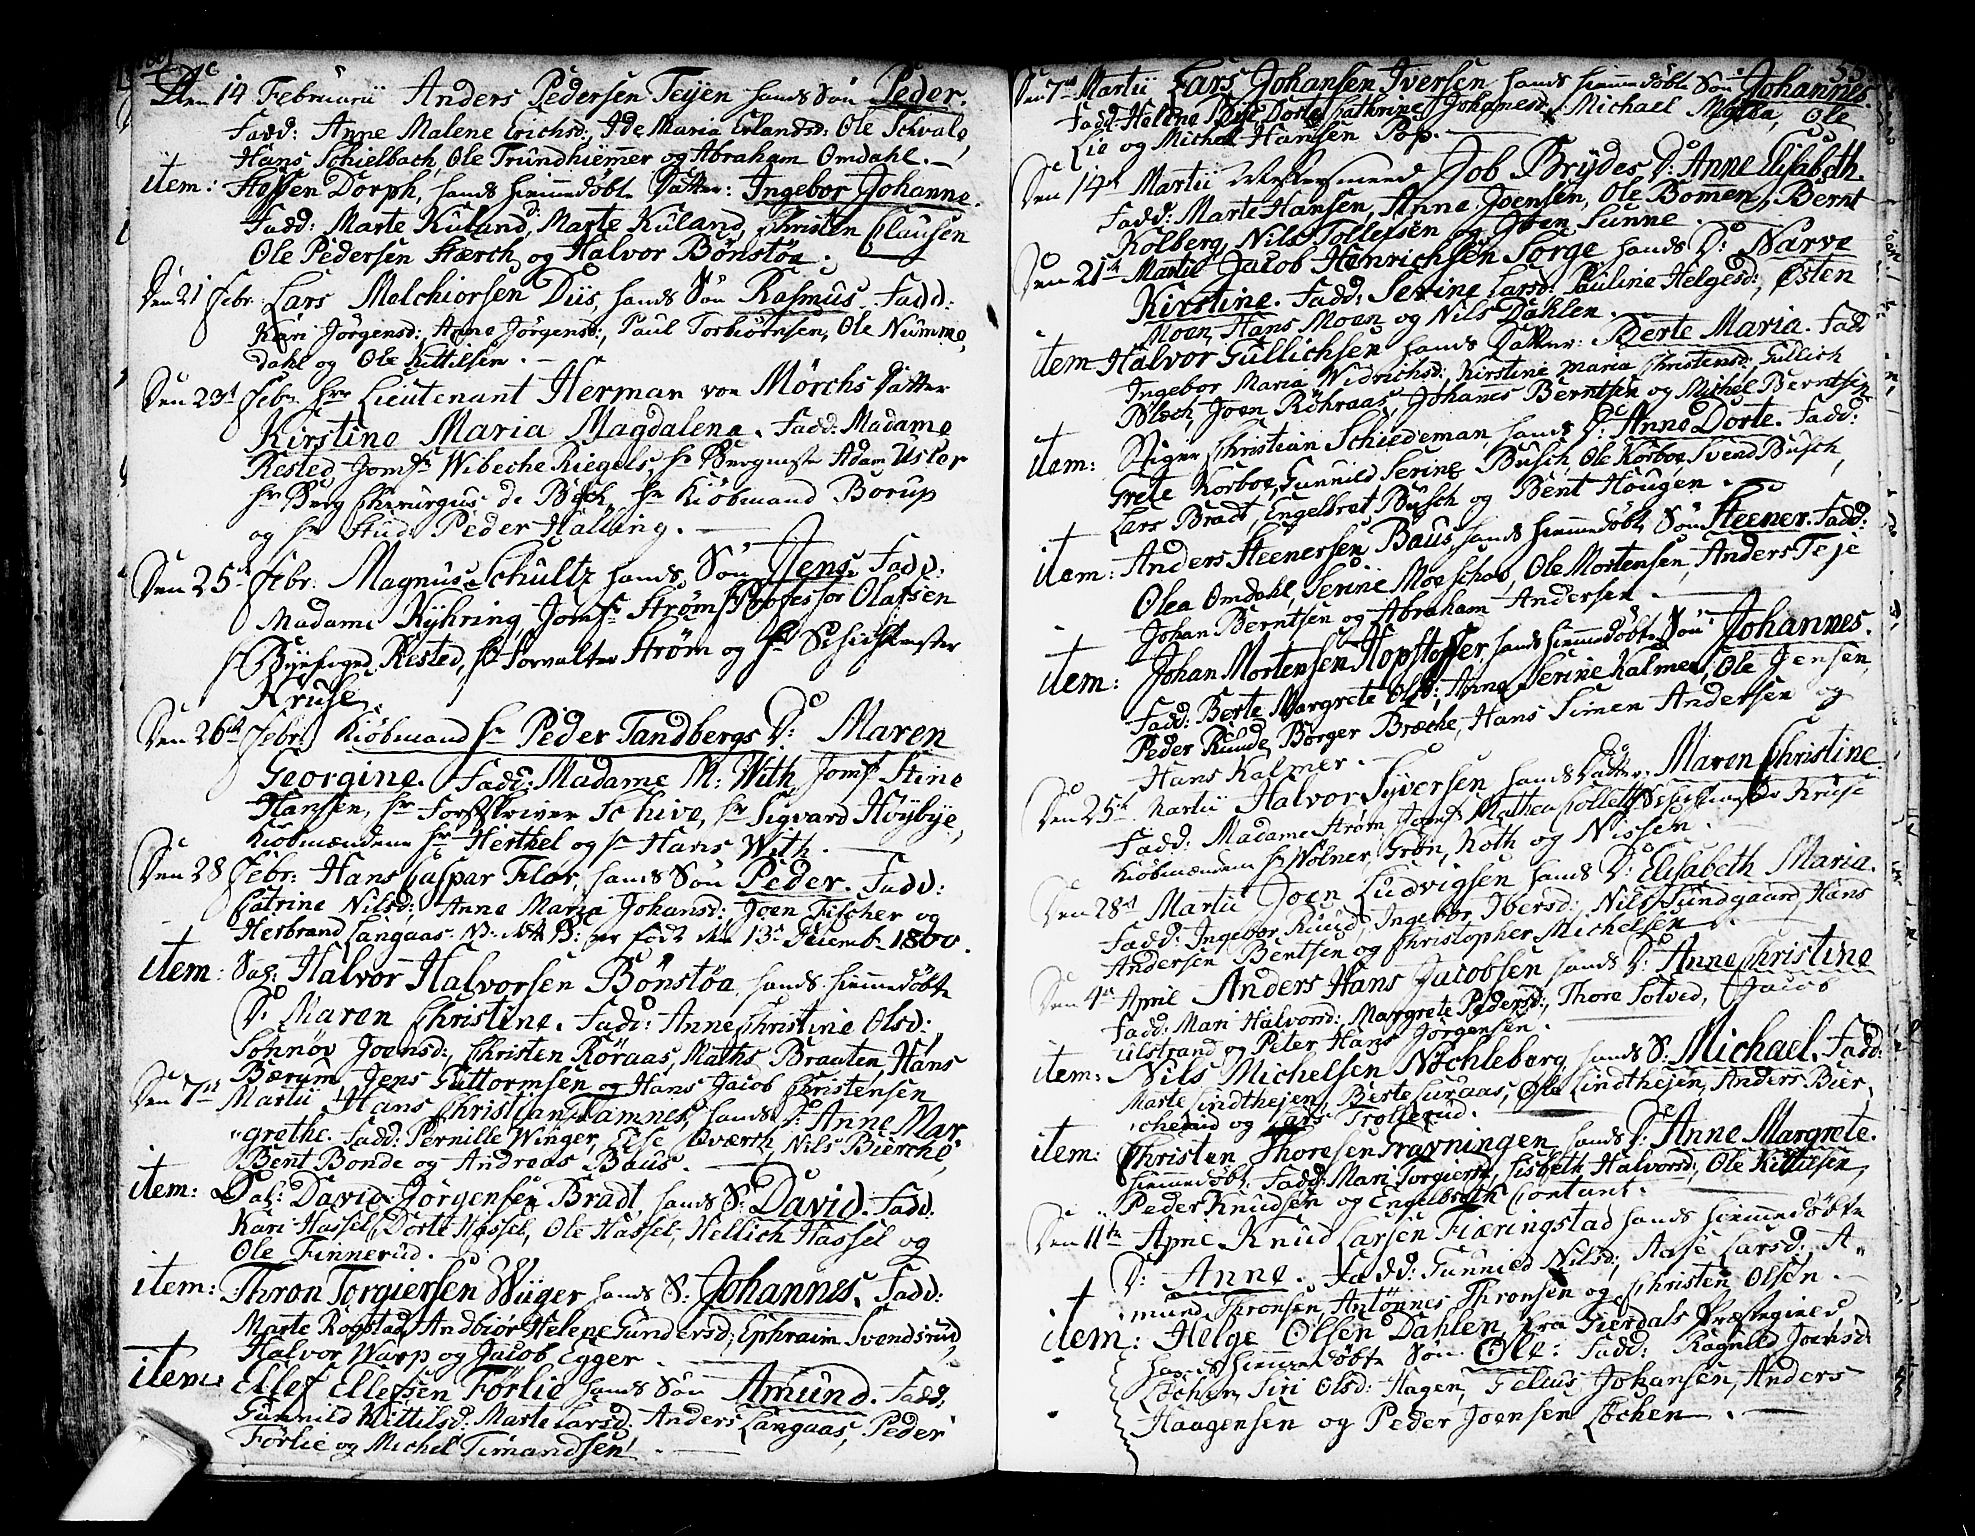 Den 14 Februarii Anders Pedersen Teijen hands Søn Peder.
Fadd: Anne Malene Erichsd:, Ide Maria Erlandsd: Ole Schvale,
Hans Schielbach, Ole Trundhiemmer og Abraham Omdahl.
item: Steffen Dorph, hands hiemmedøbte Datter: Ingebor Johanne.
Fadd: Marte Kuland, Marte Kuland, Christen Clausen
Ole Pedersen Stærch og Halvor Bønstøa.
Den 21 Febr: Lars Melchiorsen Diis, hands Søn Rasmus. Fadd:
Kari Jörgensd:, Anne Jörgensd:, Paul Torbiörnsen, Ole Numme,
dahl og Ole Kittilsen.
Den 23d Febr: Hr Lieutenant Herman von Mörchs Datter
Kirstine Maria Magdalena. Fadd: Madame
Rested, Jomf Wibeche Riegels, Hr Bergmester Adam Usler
Hr Berg Chirurgus de Besh, Hr Kiöbmand Borup
og Hr Stud: Peder Halling.
Den 25d Febr: Magnus Schultz hands Søn Jens. Fadd:
Madame Nyhring, Jomfr Strøm, Professor Olafsen
Hr Byefoged Rested, Hr Forvalter Strøm og Hr Schichtmester
Kruse.
Den 26de Febr: Kiöbmand Hr Peder Tandbergs D: Maren
Georgine. Fadd: Madame M: With, Jomfr Stine
Hansen, Hr Forstskriver Schive, Hr Sigvard Höybye,
Kiöbmændene Hr Herthel og Hr Hans With.
Den 28 Febr: Hans Caspar Flor, hands Søn Peder. Fadd:
Catrine Nilsd:, Anne Maria Johansd:, Joen Fischer og
Herbrand Langaas. NB: dette B: er født den 13d Decemb: 1800.
item: Sag: Halvor Halvorsen Bönstöa, hands hiemmedøbte
D: Maren Christine. Fadd: Anne Christine Olsd:,
Sønnøv Joensd:, Christen Röraas, Maths Braaten, Hans
Bærum, Jens Guttormsen og Hans Jacob Christensen
Den 7de Martii Hans Christian Flamner, hands D: Anne Mar
grethe. Fadd: Pernille Winger, Else Overch, Nils Bierche,
Bent Bonde og Andreas Baus.
item: Sal: David Jörgensen Bradt, hands S: David. Fadd:
Kari Hassel, Dorte Hassel, Ole Hassel, Hellich Hassel og
Ole Finnerud.
item: Thron Torgiersen Wüger hands S: Johannes. Fadd:
Marte Rogstad, Andbiør Helene Gundersd:, Ephraim Svendsrud,
Halvor Warp og Jacob Egger.
item: Ellef Ellefsen Förlie hands Søn Amund. Fadd:
Gunnild Kittilsd: Marte Larsd: Anders Langaas, Peder
Förlie og Michel Timandsen.
Den 7de Martii Lars Johansen Iversen hands hiemmedøbte Søn: Johannes.
Fadd: Helene Dorte Cathrine Johanesd: Michael Ole
Lie og Michel Hansen Pop.
Den 14de Martii Job Brydes D: Anne Elisabeth.
Fadd: Marte Hansen, Anne Joensen, Ole Bomen, Bernt
Kolberg, Nils Tollefsen og Joen Sunne.
Den 21de Martii Jacob Henrichsen Sorge hands D: Narve
Kirstine. Fadd: Serine Larsd: Pauline Helgesd:, Østen
Moen, Hans Moen og Nils Dahlen.
item Halvor Gullichsen hands Datter: Berte Maria. Fadd
Ingebor Maria Widrichsd:, Kirstine Maria Christensd:, Gullich
Blech, Joen Röhraas, Johanes Berntsen og Michel Berntsen
item: Stiger Christian Schiedeman, hands D: Anne Dorte. Fadd:
Grete Korboe, Gunnild Serine Busch, Ole Korboe, Svend Busch,
Lars Bradt, Engelbret Busch og Bent Hougen.
item: Anders Steenersen Baus, hands hiemmedøbte Søn Steener. Fadd:
Olea Omdahl, Serine Moeschou, Ole Mortensen, Anders Teje
Johan Berntsen og Abraham Andersen.
item: Johan Mortensen Hopstosser, hands hiemmedøbte Søn Johannes.
Fadd: Berte Margrete Olsd:, Anne Serine Kalmer, Ole Jensen,
Peder Runde, Börger Bræche, Hans Simen Andersen og
Hans Kalmer.
Den 25de Martii Halvor Syversen, hands Datter: Maren Christine.
Fadd: Madame Strøm, Jomfr Mathea Collett, Schichtmester Kruse
Kiöbmændene Hr Wolner, Grøn, Roth og Nissen.
Den 28de Martii Joen Ludvigsen hands D: Elisabeth Maria.
Fadd: Ingebor Ruud, Ingebor Ibersd:, Nils Sundgaard, Hans
Andersen Bentsen og Christopher Michelsen
Den 4de April Anders Hans Jacobsen hands D: Anne Christine
Fadd: Mari Halvorsd:, Margrete Pedersd:, Thore Solved, Jacob
Ulstrand og Peter Hans Jörgensen.
item: Nils Michelsen Nöchleberg hands S: Michael. Fadd:
Marte Lindthejen, Berte Luraas, Ole Lindthejen, Anders Bier
cherud og Lars Trollerud.
item: Christen Thoresen Gravningen hands D: Anne Margrete.
hiemmedøbt. Fadd: Mari Torgiersd, Lisbeth Halvorsd:, Ole Kittilsen,
Peder Knudsen og Engelbreth Contant.
Den 11te April Knud Larsen Fiæringstad hands hiemmedøbte
D: Anne. Fadd: Gunnild Nilsd:, Aase Larsd:, A
mund Thronsen, Antönnes Thronsen og Christen Olsen.
item: Helge Olsen Dahlen, fra Gierdals Præstegield
hands hiemmedøbte Søn Ole: Fadd: Ragnild Joensd:
Löchen, Siri Olsd: Hagen, Felius Johansen, Anders
Haagensen og Peder Joensen Löchen.